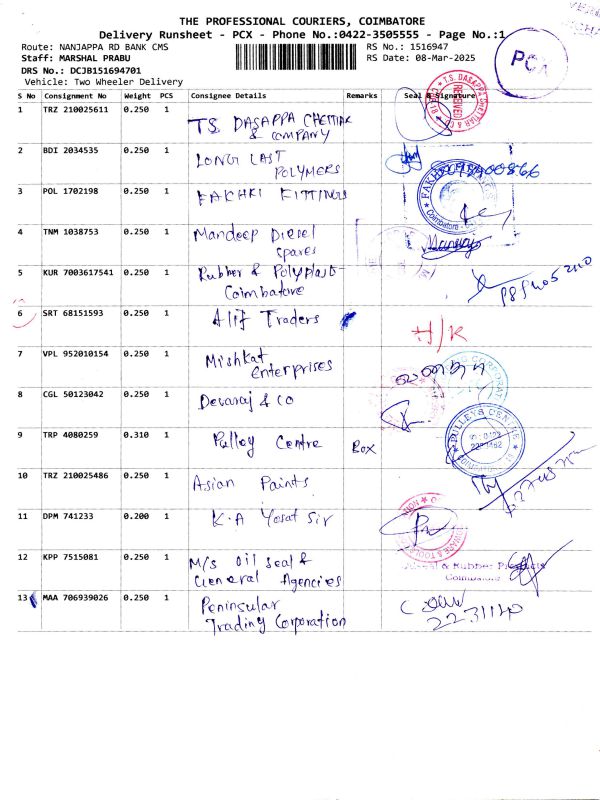 THE PROFESSIONAL COURIERS, COIMBATORE
Delivery Runsheet - PCX - Phone No.:0422-3505555 - Page No.:1
Route: NANJAPPA RD BANK CMS
RS No.: 1516947
Staff: MARSHAL PRABU
RS Date: 08-Mar-2025
DRS No.: DCJB151694701
Vehicle: Two Wheeler Delivery
PCX
S No Consignment No Weight PCS Consignee Details Remarks Seal & Signature
1 TRZ 210025611 0.250 1 T.S. DASAPPA CHETTIAR
& COMPANY
T.S. DASAPPA CHETTIAR & CO
RECEIVED
2 BDI 2034535 0.250 1 LONG LAST
POLYMERS
3 POL 1702198 0.250 1 FAKHRI FITTINGS
4 TNM 1038753 0.250 1 Mandeep Diesel
Spares
5 KUR 7003617541 0.250 1 Rubber & Polyplast
Coimbatore
6 SRT 68151593 0.250 1 Alif Traders H/K
7 VPL 952010154 0.250 1 Mishkat
Enterprises
8 CGL 50123042 0.250 1 Devaraj & Co
9 TRP 4080259 0.310 1 Pulley Centre Box
PULLEYS CENTRE
10 TRZ 210025486 0.250 1 Asian Paints
11 DPM 741233 0.200 1 K.A Yosat Sir
12 KPP 7515081 0.250 1 M/s Oil Seal &
General Agencies
& Rubber Products
Coimbatore
13 MAA 706939026 0.250 1 Peninsular
Trading Corporation
2231140